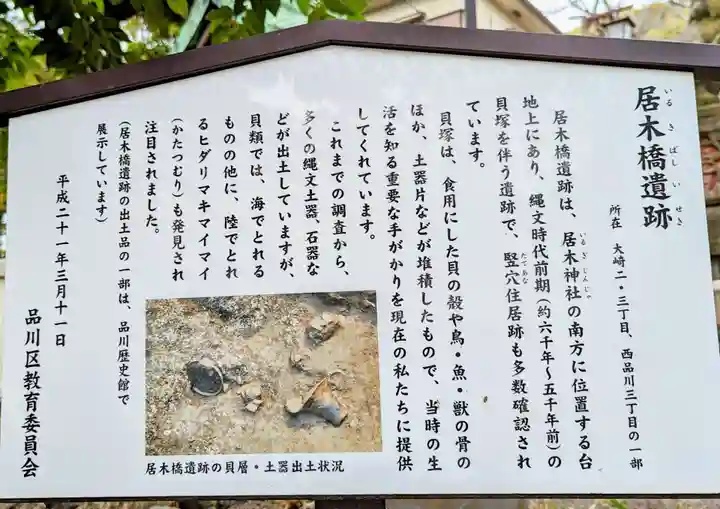 居木橋遺跡
いるきばしいせき
所在 大崎二・三丁目、西品川三丁目の一部
居木橋遺跡は、居木神社の南方に位置する台
いるぎじんじゃ
地上にあり、縄文時代前期(約六千年~五千年前)の
貝塚を伴う遺跡で、竪穴住居跡も多数確認され
たてあな
ています。
貝塚は、食用にした貝の殻や鳥・魚・獣の骨の
ほか、土器片などが堆積したもので、当時の生
活を知る重要な手がかりを現在の私たちに提供
してくれています。
これまでの調査から、
多くの縄文土器、石器な
どが出土していますが、
貝類では、海でとれる
ものの他に、陸でとれ
るヒダリマキマイマイ
(かたつむり)も発見され
注目されました。
(居木橋遺跡の出土品の一部は、品川歴史館で
展示しています)
平成二十一年三月十一日
品川区教育委員会
居木橋遺跡の貝層・土器出土状況